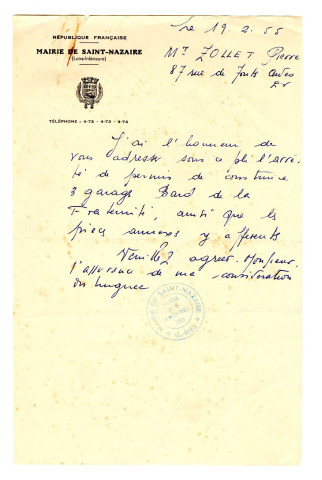 Le 19. 2. 55
RÉPUBLIQUE FRANÇAISE
MAIRIE DE SAINT-NAZAIRE
(Loire-Inférieure)
Mr. ZOLLET Pierre
87 rue de
TÉLÉPHONE : 4-72 - 4-73 - 4-74
J'ai l'honneur de
vous adresser sous ce pli l'arrê-
té de permis de construire
3 garages Bard de la
Fraternité, ainsi que les
pièces annexes y afférents
Veuillez agréer. Monsieur.
l'assurance de ma considération
distinguée
MAIRIE DE SAINT-NAZAIRE